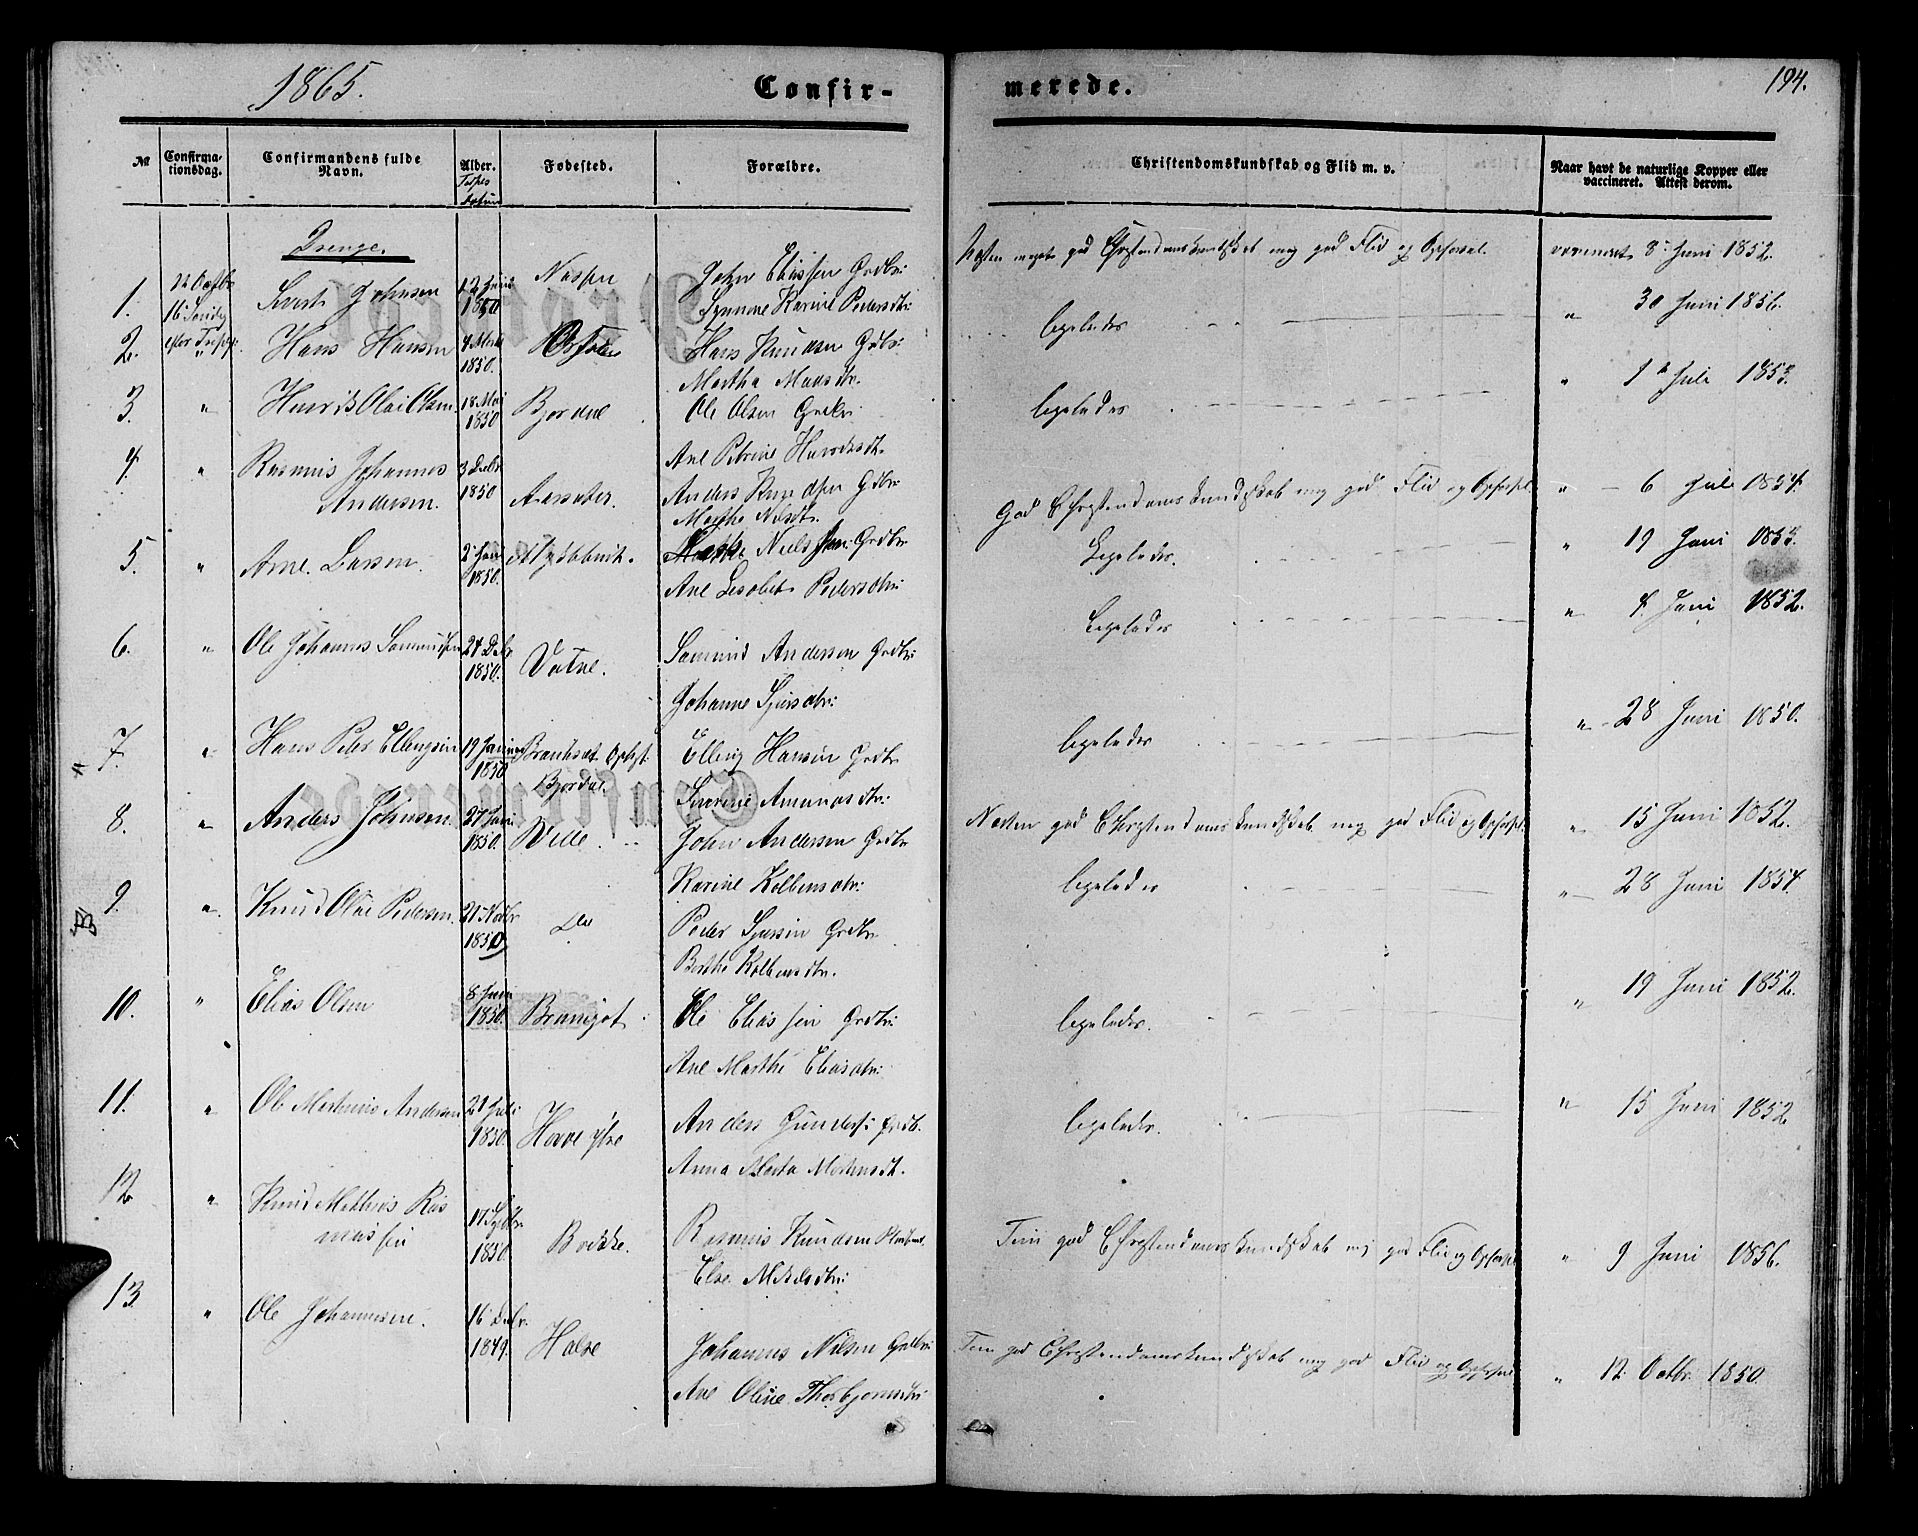 1865.
Confir-
merede.
194.
№
Confirma-
tionsdag.
Confirmandens fulde
Navn.
Alder.
Fødested.
Forældre.
Christendomskundskab og Flid m. v.
Naar havt de naturlige Kopper eller
vaccineret. Attest derom.
Drenge.
1.
16 Søndg
efter
Sivert Johnsen
12 Juni
1850
John Eliassen Grdbr:
Synneve Karine Pedersdtr:
Næsten meget god Christendomskundskab meg god Flid og Opførsel.
vaccineret 8 Juni 1852.
2.
"
Hans Hansen
1850.
Hans Knudsen Grdbr:
Martha Monsdtr.
ligeledes
" 30 Juni 1856.
3.
"
Henrik Olai Olsen
18 Mai
1850
Bjørdal
Ole Olsen
Ane Petrine
ligeledes
" 1 Juli 1853.
4.
"
Rasmus Johannes
Andersen.
3 Decbr
1850
Aarsæter
Anders Knudsen Grdbr
Marthe Nilsdtr.
God Christendomskundskab meg god Flid og Opførsel
" 6 Juli 1854.
5.
"
Arne Larsen.
1850.
Nielssen Grdbr
Ane Lisabet Pedersdtr:
Ligeledes.
" 19 Juni 1853.
6.
"
Ole Johannes Samundsen
1850.
Vatne.
Samund Andersen Grdbr:
Johanne Sjursdtr:
Ligeledes
" 4 Juni 1852.
7
"
Hans Peter Ellingsen
19
1850
Bjørdal.
Elling Hansen Grdbr
Severine Amundsdtr:
ligeledes
" 28 Juni 1850.
8.
"
Anders Johnsen
1850.
John Andersen Grdbr
Karine Kolbensdtr:
Næsten god Christendomskundskab meg god Flid og Opførsel.
" 15 Juni 1852.
9.
"
Knud Olae Pedersen.
21 Novbr
1850
Do
Peder Sjursen Grdbr
Berthe Kolbensdtr.
ligeledes
" 28 Juni 1854.
10.
"
Elias Olsen
8 Juni
1850.
Ole Eliassen Grdbr:
Ane Marthe Eliasdtr:
ligeledes.
" 19 Juni 1852.
11.
"
Ole Martinus Andersen
21 Juli
1850.
Anders Gunders: Grdb.
Anna Marta
ligeledes.
" 15 Juni 1852
12
"
Knud Mathias Ras
mussen
17 Septbr.
1850.
Rasmus Knudsen
Else
Tem god Christendomskundskab meg god Flid og Opførsel
" 9 Juni 1856.
13.
"
Ole Johannesen.
16 Decbr.
1849.
Johannes Nilsen Grdbr:
Ane Oline Thorbjørnsdtr:
Tem god Christendomskundskab meg god Flid og Opførsel
" 12 Octbr. 1850.